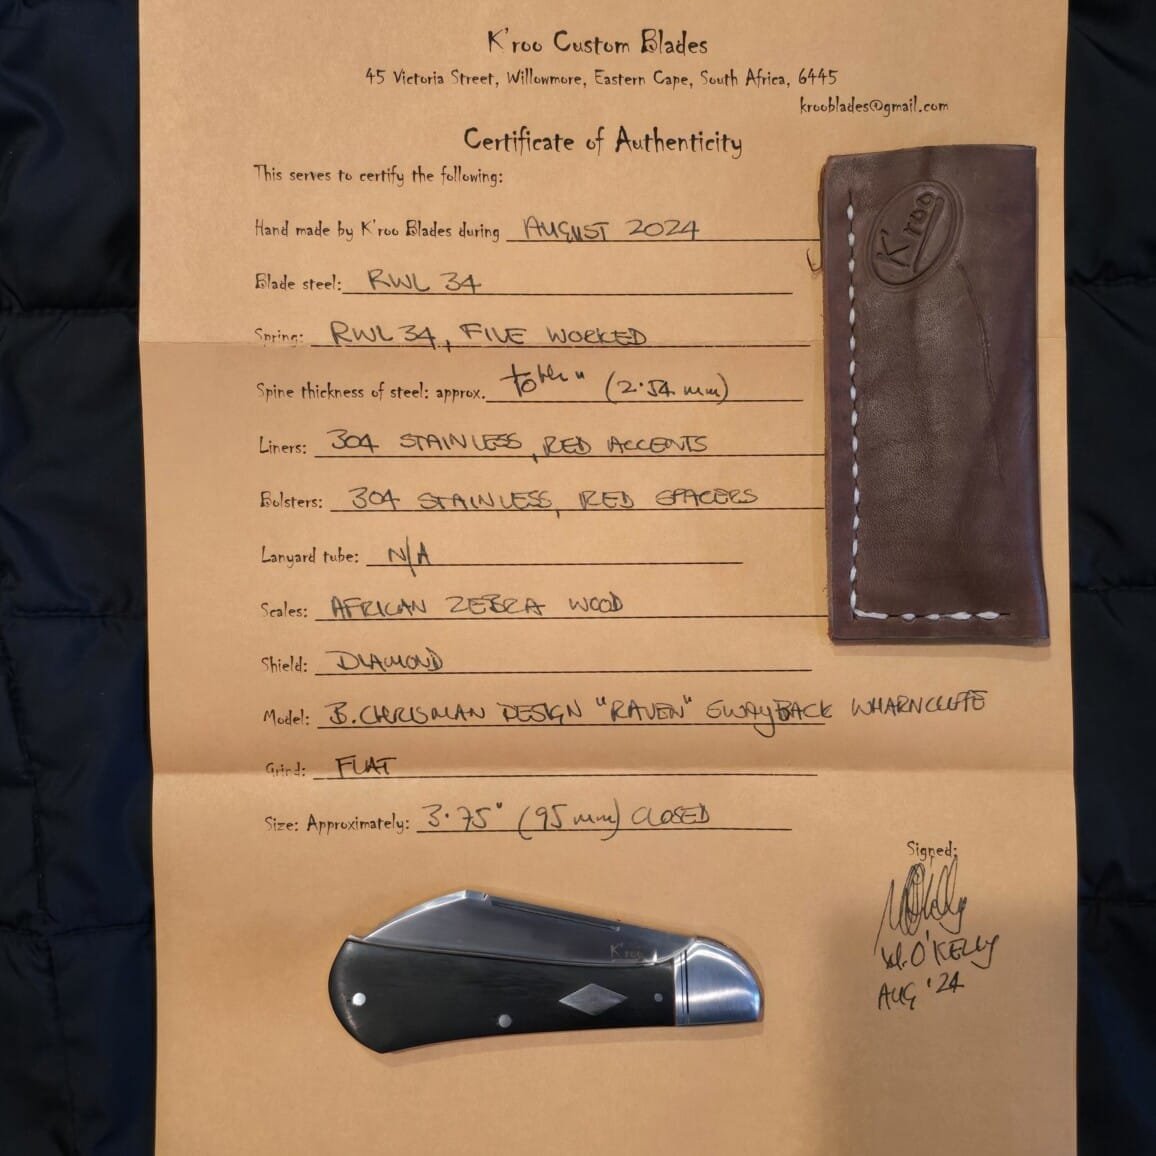 K'roo Custom Blades
45 Victoria Street, Willowmore, Eastern Cape, South Africa, 6445
krooblades@gmail.com
Certificate of Authenticity
This serves to certify the following:
Hand made by K'roo Blades during AUGUST 2024
Blade steel: RWL 34
Spring: RWL 34, FILE WORKED
Spine thickness of steel: approx. 1/10th" (2.54 mm)
Liners: 304 STAINLESS, RED ACCENTS
Bolsters: 304 STAINLESS, RED SPACERS
Lanyard tube: N/A
Scales: AFRICAN ZEBRA WOOD
Shield: DIAMOND
Model: B. CHRISMAN DESIGN "RAVEN" SWAYBACK WHARNCLIFFE
Grind: FLAT
Size: Approximately: 3.75" (95 mm) CLOSED
Signed:
O'KELLY
AUG '24
K'roo
K'roo